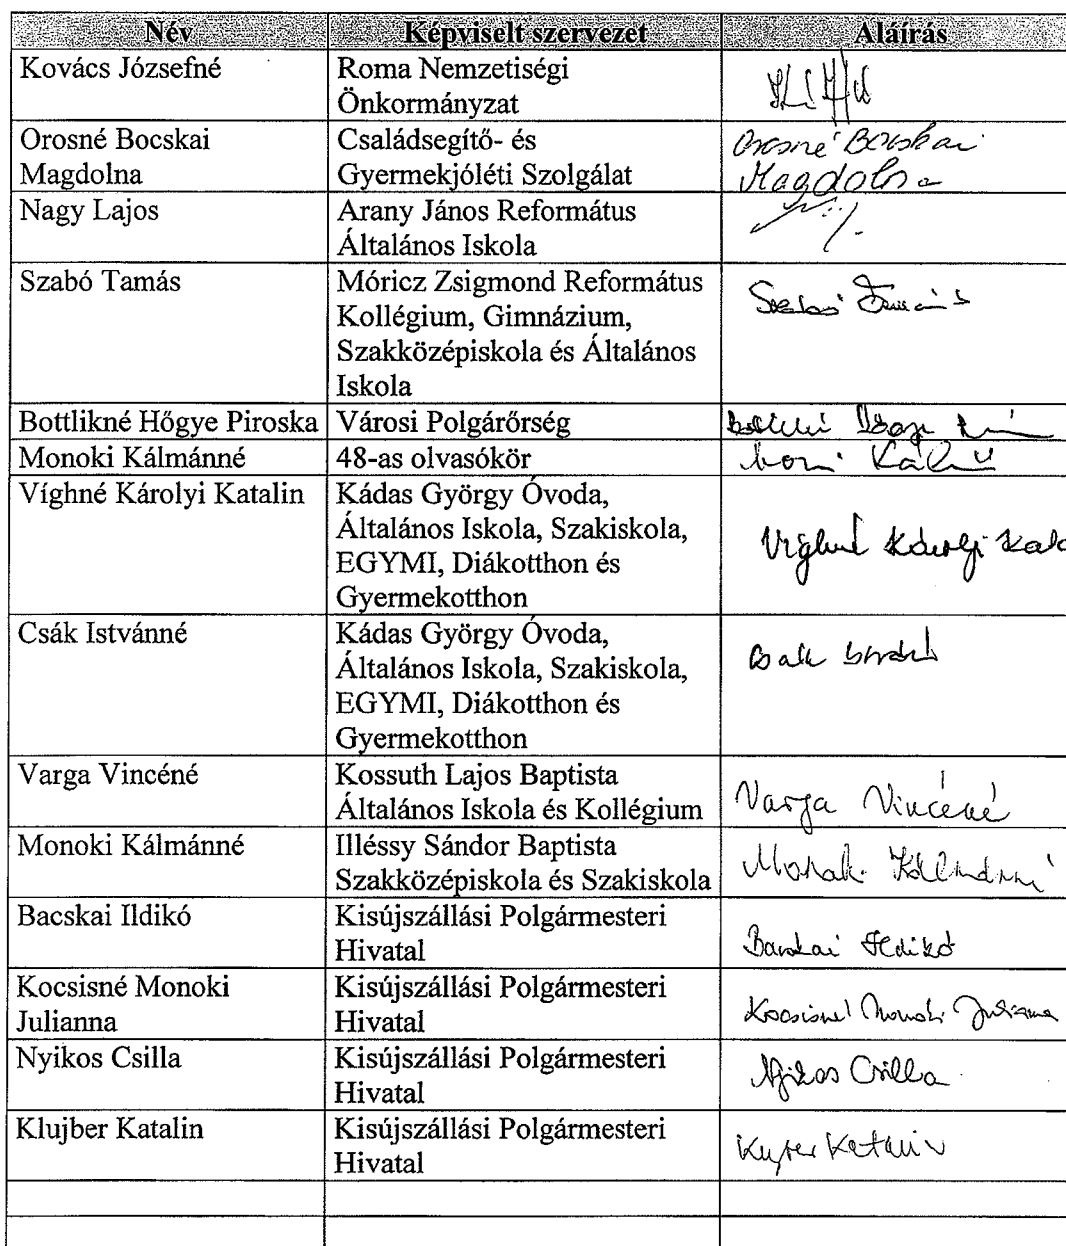 Név Képviselt szervezet Aláírás
Kovács Józsefné Roma Nemzetiségi
Önkormányzat
Orosné Bocskai Családsegítő- és Orosné Bocskai
Magdolna Gyermekjóléti Szolgálat Magdolna
Nagy Lajos Arany János Református
Általános Iskola
Szabó Tamás Móricz Zsigmond Református Szabó Tamás
Kollégium, Gimnázium,
Szakközépiskola és Általános
Iskola
Bottlikné Hőgye Piroska Városi Polgárőrség
Monoki Kálmánné 48-as olvasókör
Víghné Károlyi Katalin Kádas György Óvoda,
Általános Iskola, Szakiskola, Víghné Károlyi
EGYMI, Diákotthon és
Gyermekotthon
Csák Istvánné Kádas György Óvoda,
Általános Iskola, Szakiskola, Csák
EGYMI, Diákotthon és
Gyermekotthon
Varga Vincéné Kossuth Lajos Baptista
Általános Iskola és Kollégium Varga Vincéné
Monoki Kálmánné Illéssy Sándor Baptista
Szakközépiskola és Szakiskola Monoki Kálmánné
Bacskai Ildikó Kisújszállási Polgármesteri
Hivatal Bacskai Ildikó
Kocsisné Monoki Kisújszállási Polgármesteri
Julianna Hivatal Kocsisné Monoki Julianna
Nyikos Csilla Kisújszállási Polgármesteri
Hivatal Nyikos Csilla
Klujber Katalin Kisújszállási Polgármesteri
Hivatal Katalin